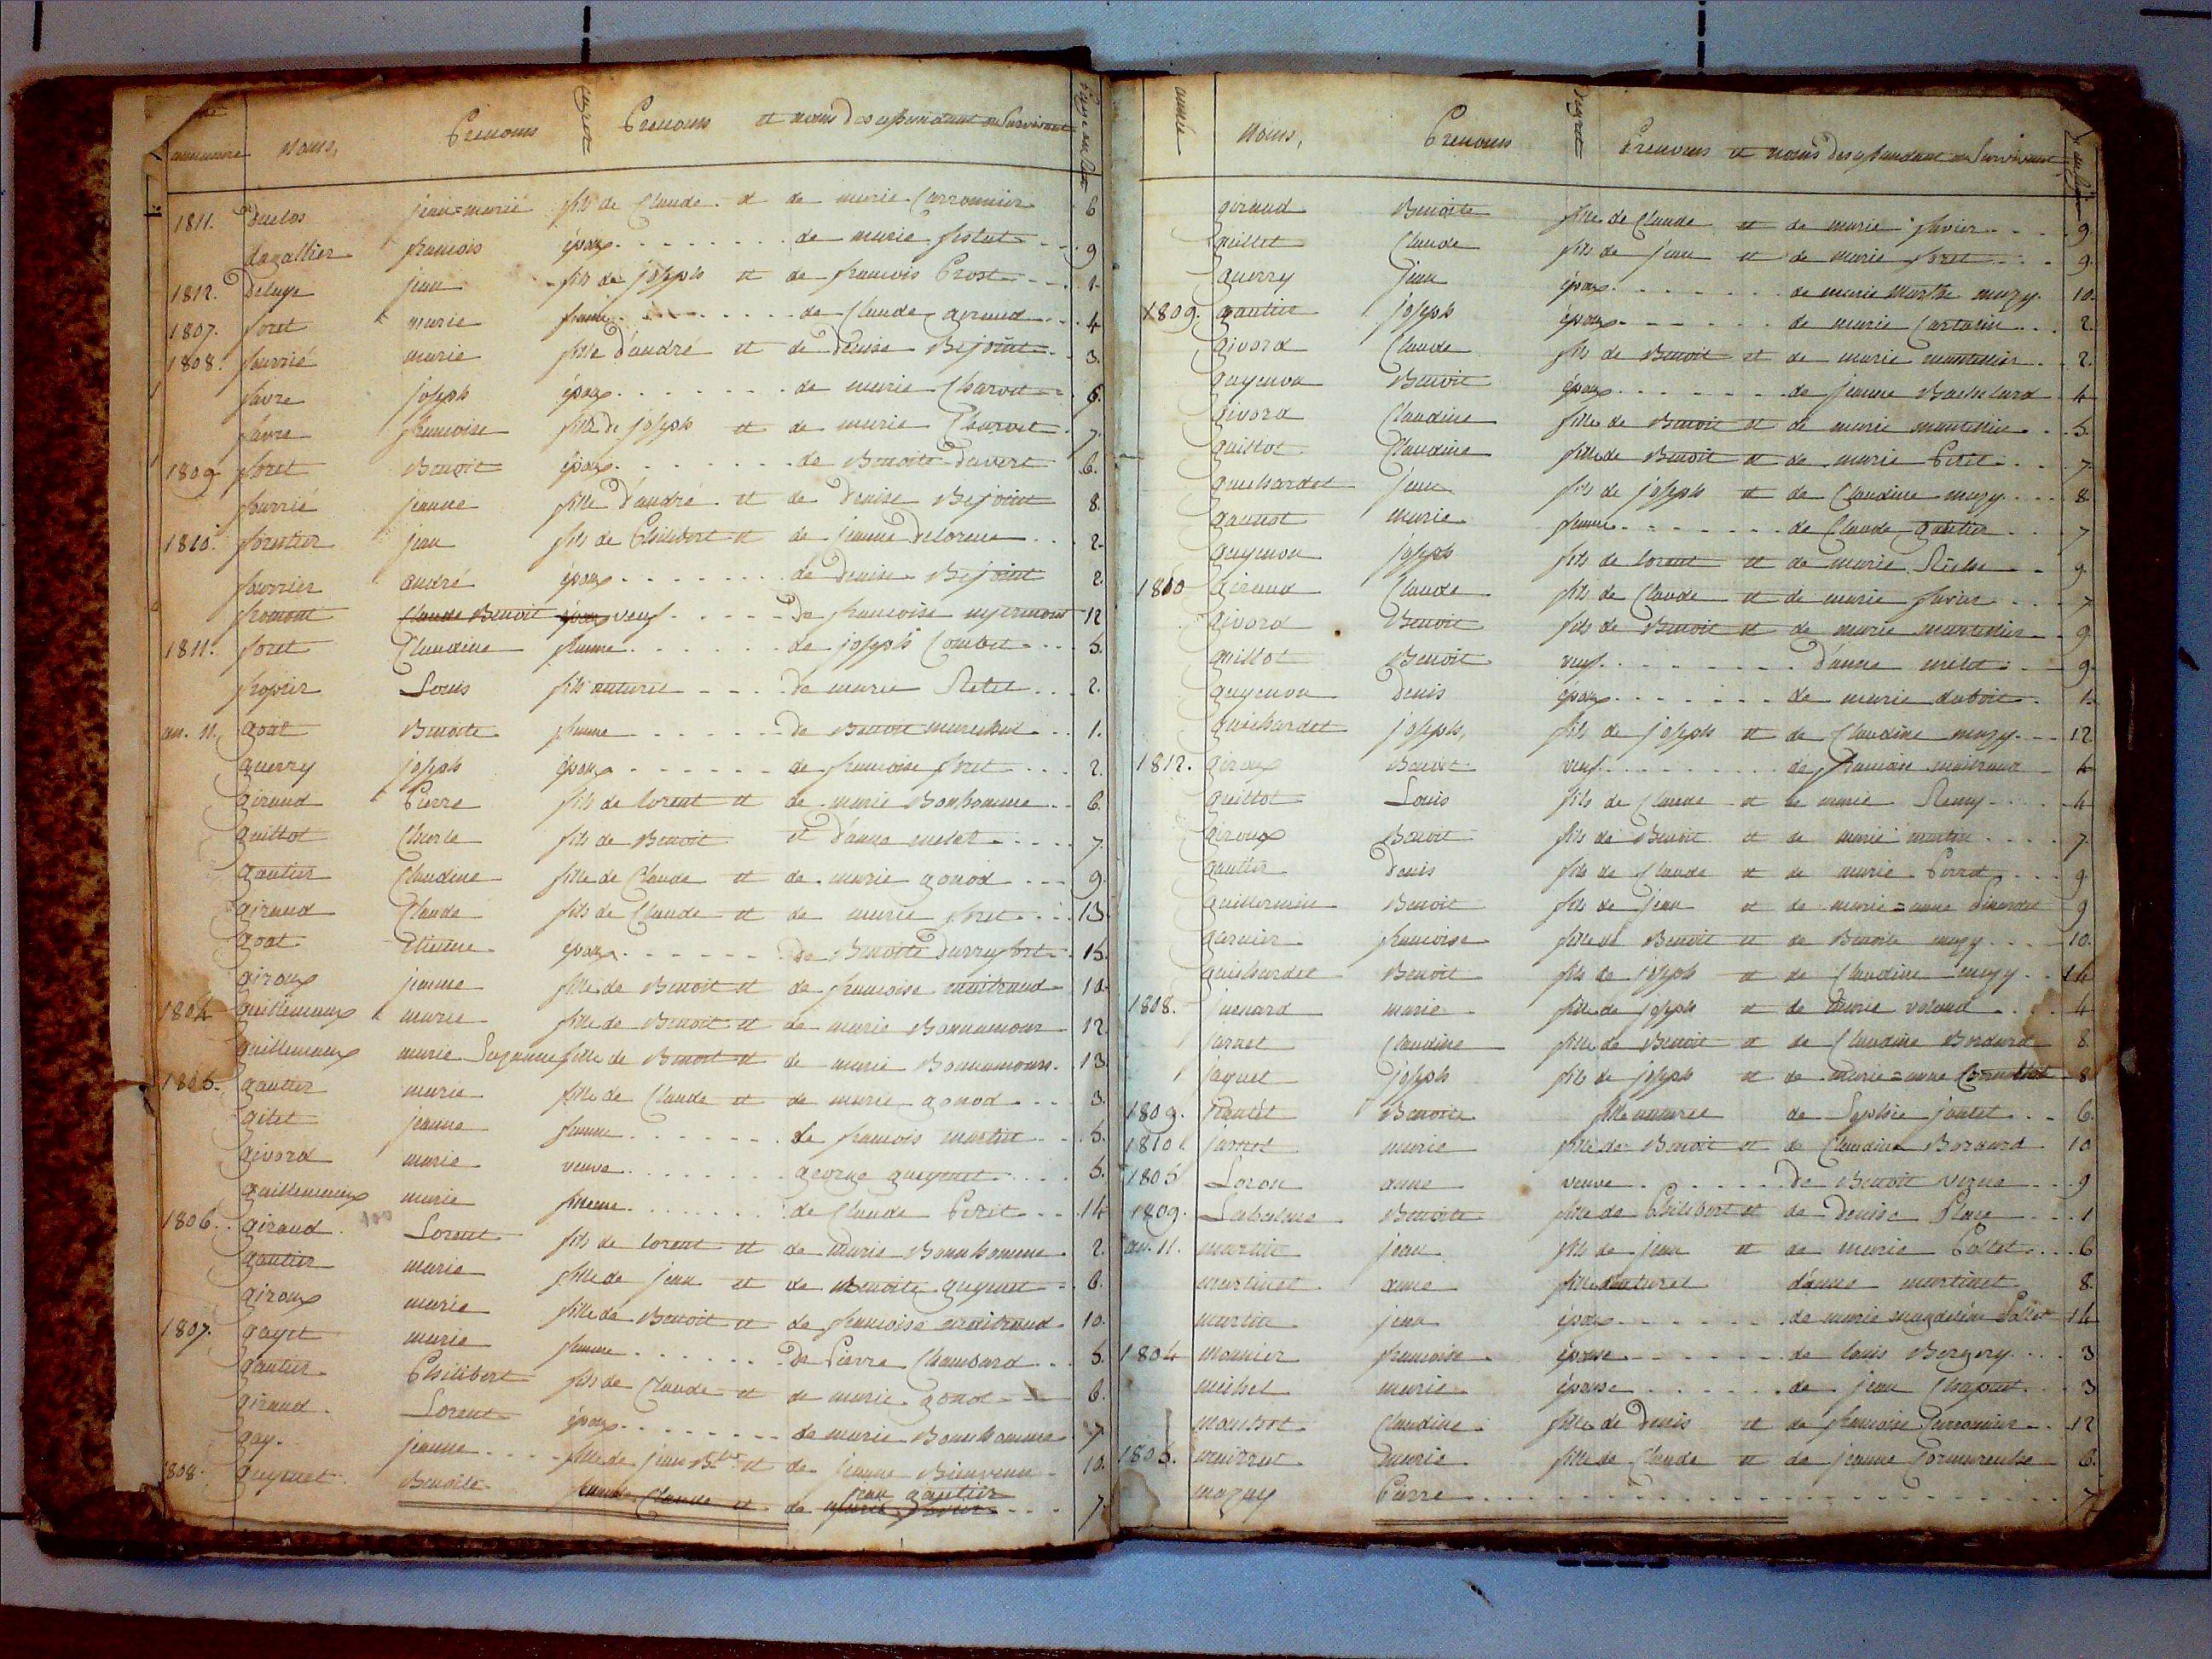 Noms, Prenoms Prenoms et noms des ascendant ou Survivant
1811. Duclos jean=marie fils de Claude et de marie Carronnier 6
dagallier francois époux de marie 9
1812. Deluye jean fils de joseph et de francois Prost 1
1807. foret marie femme de Claude giraud 4
1808. fourrié marie fille d'andré et de Denise Bejoint 3.
favre joseph époux de marie Charvet 6.
favre francoise fille de joseph et de marie Charvet 7
1809 foret Benoit époux de Benoite Duvert 6.
fourrié jeanne fille d'andré et de Denise Bejoint 8.
1810. forestier jean fils de Philibert et de jeanne Delorme 2.
fourrier andré époux de Denise Bejoint 2
fromont Claude Benoit époux veuf De francoise 12
1811. foret Claudine femme de joseph Combet 5.
fropier Louis fils naturel de marie Retet 2.
an. 11. goat Benoite femme De Benoit marechal 1.
guerry joseph époux de francoise foret 2.
giraud Pierre fils de lorent et de marie Bonhomme 6.
guillot Charle fils de Benoit et d'anne melot 7
gautier Claudine fille de Claude et de marie gonod 9.
giraud Claude fils de Claude et de marie foret 13.
goat Etienne époux De Benoite 15.
giroux jeanne fille de Benoit et de francoise maitraud 10
1804 guillemaux marie fille de Benoit et de marie Bonnamour 12
guillemaux marie Suzanne fille de Benoit et de marie Bonnamours. 13
1805. gautier marie fille de Claude et de marie gonod 3.
gilet jeanne femme de francois martin 5.
givord marie veuve george guyenet 5.
guillemaux marie femme de Claude Petit 14
1806. giraud. 100 Lorent fils de lorent et de marie Bonnhomme 2.
gautier marie fille de jean et de Benoite guyenet 6.
giroux marie fille de Benoit et de francoise maitraud 10.
1807. gayet marie femme De Pierre Chambard 5.
gautier Philibert fils de Claude et de marie gonod 6.
giraud. Lorent époux de marie Bonnhomme 7
gay. jeanne fille de jean Bte et de jeanne Bienvenu 10.
jean gautier
1808. guyenet Benoite femme Claude et de marie favier 7
année Noms, Prenoms Prenoms et noms des ascendant ou Survivant
giraud Benoite fille de Claude et de marie favier 9.
guillet Claude fils de jean et de marie foret 9.
guerry jean époux de marie Marthe muzy. 10.
1809. gautier joseph époux de marie Cartalin 2.
givord Claude fils de Benoit et de marie mantellier 2.
guyenon Benoit époux de jeanne Bachelard 4
givord Claudine fille de Benoit et de marie mantellier 5.
guillot Claudine fille de Benoit et de marie Petit 7
guichardet jean fils de joseph et de Claudine muzy 8
gaunot marie femme de Claude gautier 7
guyenon joseph fils de lorent et de marie Riche 9.
1810 giraud Claude fils de Claude et de marie favier 7
givord Benoit fils de Benoit et de marie mantellier 9.
guillot Benoit veuf d'anne melot 9.
guyenon Denis époux de marie duboit 1.
guichardet joseph, fils de joseph et de Claudine muzy 12
1812. giroux Benoit veuf de francoise maitraud 4
guillot Louis fils de Claude et de marie Remy 4
giroux Benoit fils de Benoit et de marie martin 7.
gautier Denis fils de Claude et de marie Perrot 9
guillermin Benoit fils de jean et de marie=anne 9
garnier francoise fille de Benoit et de Benoite muzy 10.
guichardet Benoit fils de joseph et de Claudine muzy 14
1808. juenard marie fille de joseph et de marie volaud 4
jarnet Claudine fille de Benoit et de Claudine Bordard 8
jaquet joseph fils de joseph et de marie=anne 8
1809. jeantet Benoite fille naturel de Sophie jantet 6.
1810. jarnet marie fille de Benoit et de Claudine Bordard 10
1805 Loron anne veuve De Benoit vigne 9
1809. Labalme Benoite fille de Philibert et de Denise Place 1
an. 11. martin jean fils de jean et de marie Pallet 6
martinet anne fille naturel d'anne martinet 8.
martin jean époux de marie magdeleine Pallet 14
1804 monnier francoise épouse de louis Bergery 3
michel marie épouse de jean Chapuet 3
Claudine fille de Denis et de francoise Carronnier 12
1805. marie fille de Claude et de jeanne 6.
mazuy Pierre 7